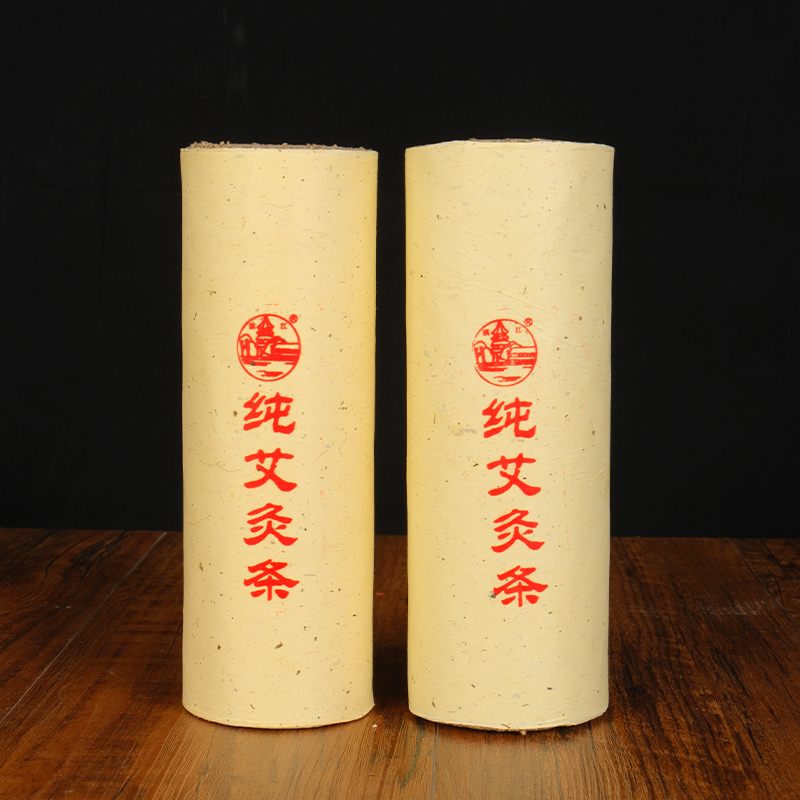 ®
纯艾灸条
®
纯艾灸条